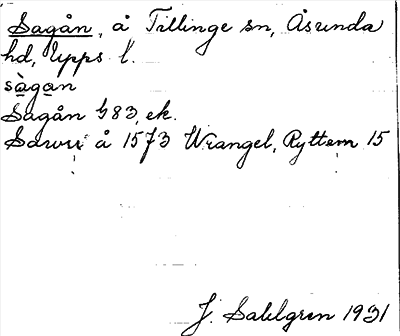 Sagån, å Tillinge sn, Åsunda
hd, Upps l.
sàgan
Sagån 983, ek.
å 1573 Wrangel, Ryttern 15
J. Sahlgren 1931